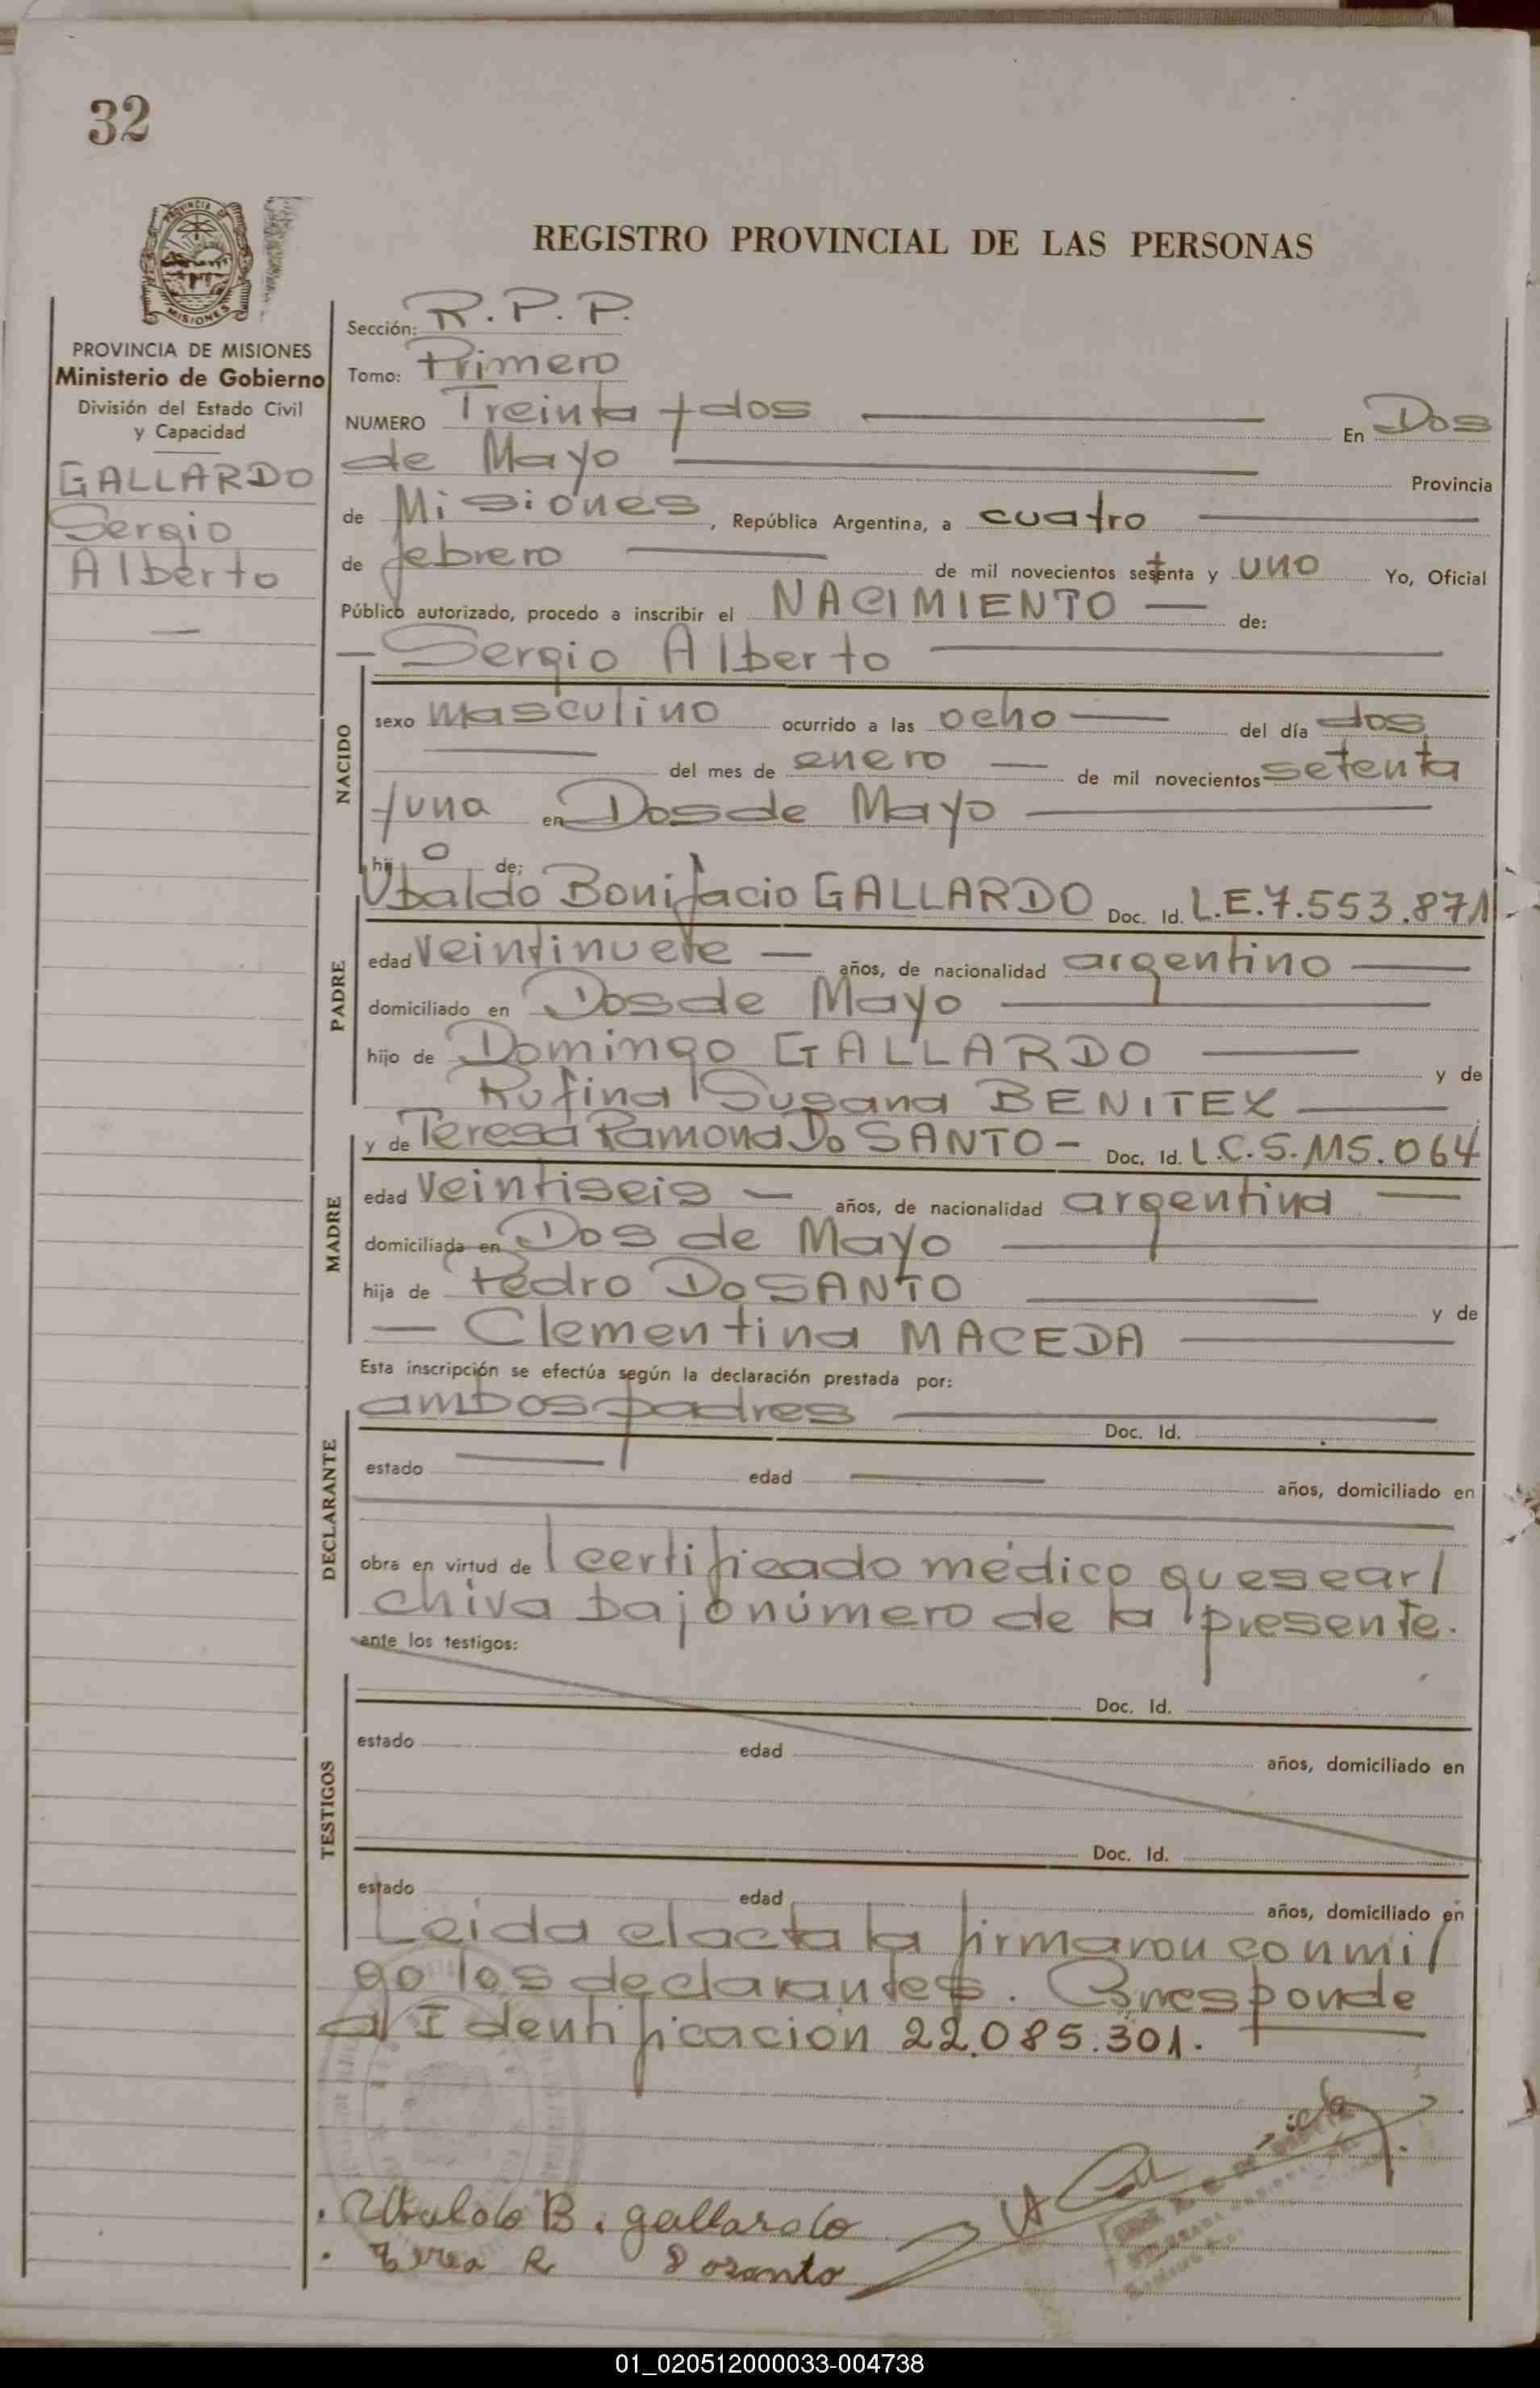 32
REGISTRO PROVINCIAL DE LAS PERSONAS
PROVINCIA DE MISIONES
Ministerio de Gobierno
División del Estado Civil
y Capacidad
GALLARDO
Sergio
Alberto
Sección: R.P.P.
Tomo: Primero
NUMERO Treinta y dos En Dos
de Mayo Provincia
de Misiones, República Argentina, a cuatro
de febrero de mil novecientos setenta y uno Yo, Oficial
Público autorizado, procedo a inscribir el NACIMIENTO de:
Sergio Alberto
NACIDO
sexo masculino ocurrido a las ocho del día dos
del mes de enero de mil novecientos setenta
y una en Dos de Mayo
hijo de;
Ubaldo Bonifacio GALLARDO Doc. Id. L.E.7.553.871
PADRE
edad veintinueve años, de nacionalidad argentino
domiciliado en Dos de Mayo
hijo de Domingo GALLARDO y de
Rufina Susana BENITEZ
y de Teresa Ramona Do SANTO Doc. Id. L.C.5.115.064
MADRE
edad veintiseis años, de nacionalidad argentina
domiciliada en Dos de Mayo
hija de Pedro Do SANTO y de
Clementina MACEDA
Esta inscripción se efectúa según la declaración prestada por:
ambos padres Doc. Id.
DECLARANTE
estado edad años, domiciliado en
obra en virtud de certificado médico que se ar/
chiva bajo número de la presente.
ante los testigos:
Doc. Id.
TESTIGOS
estado edad años, domiciliado en
Doc. Id.
estado edad años, domiciliado en
Leida el acta la firmaron conmi/
go los declarantes. Corresponde
a Identificacion 22.085.301.
Ubaldo B. gallardo
Teresa R Dosanto
01_020512000033-004738